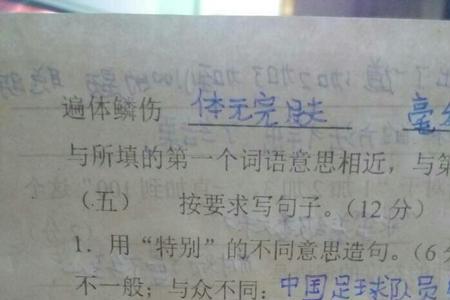 遍体鳞伤 体无完肤 毫
与所填的第一个词语意思相近，与第
（五） 按要求写句子。（12分）
1. 用“特别”的不同意思造句。（6分
不一般；与众不同：中国足球队员